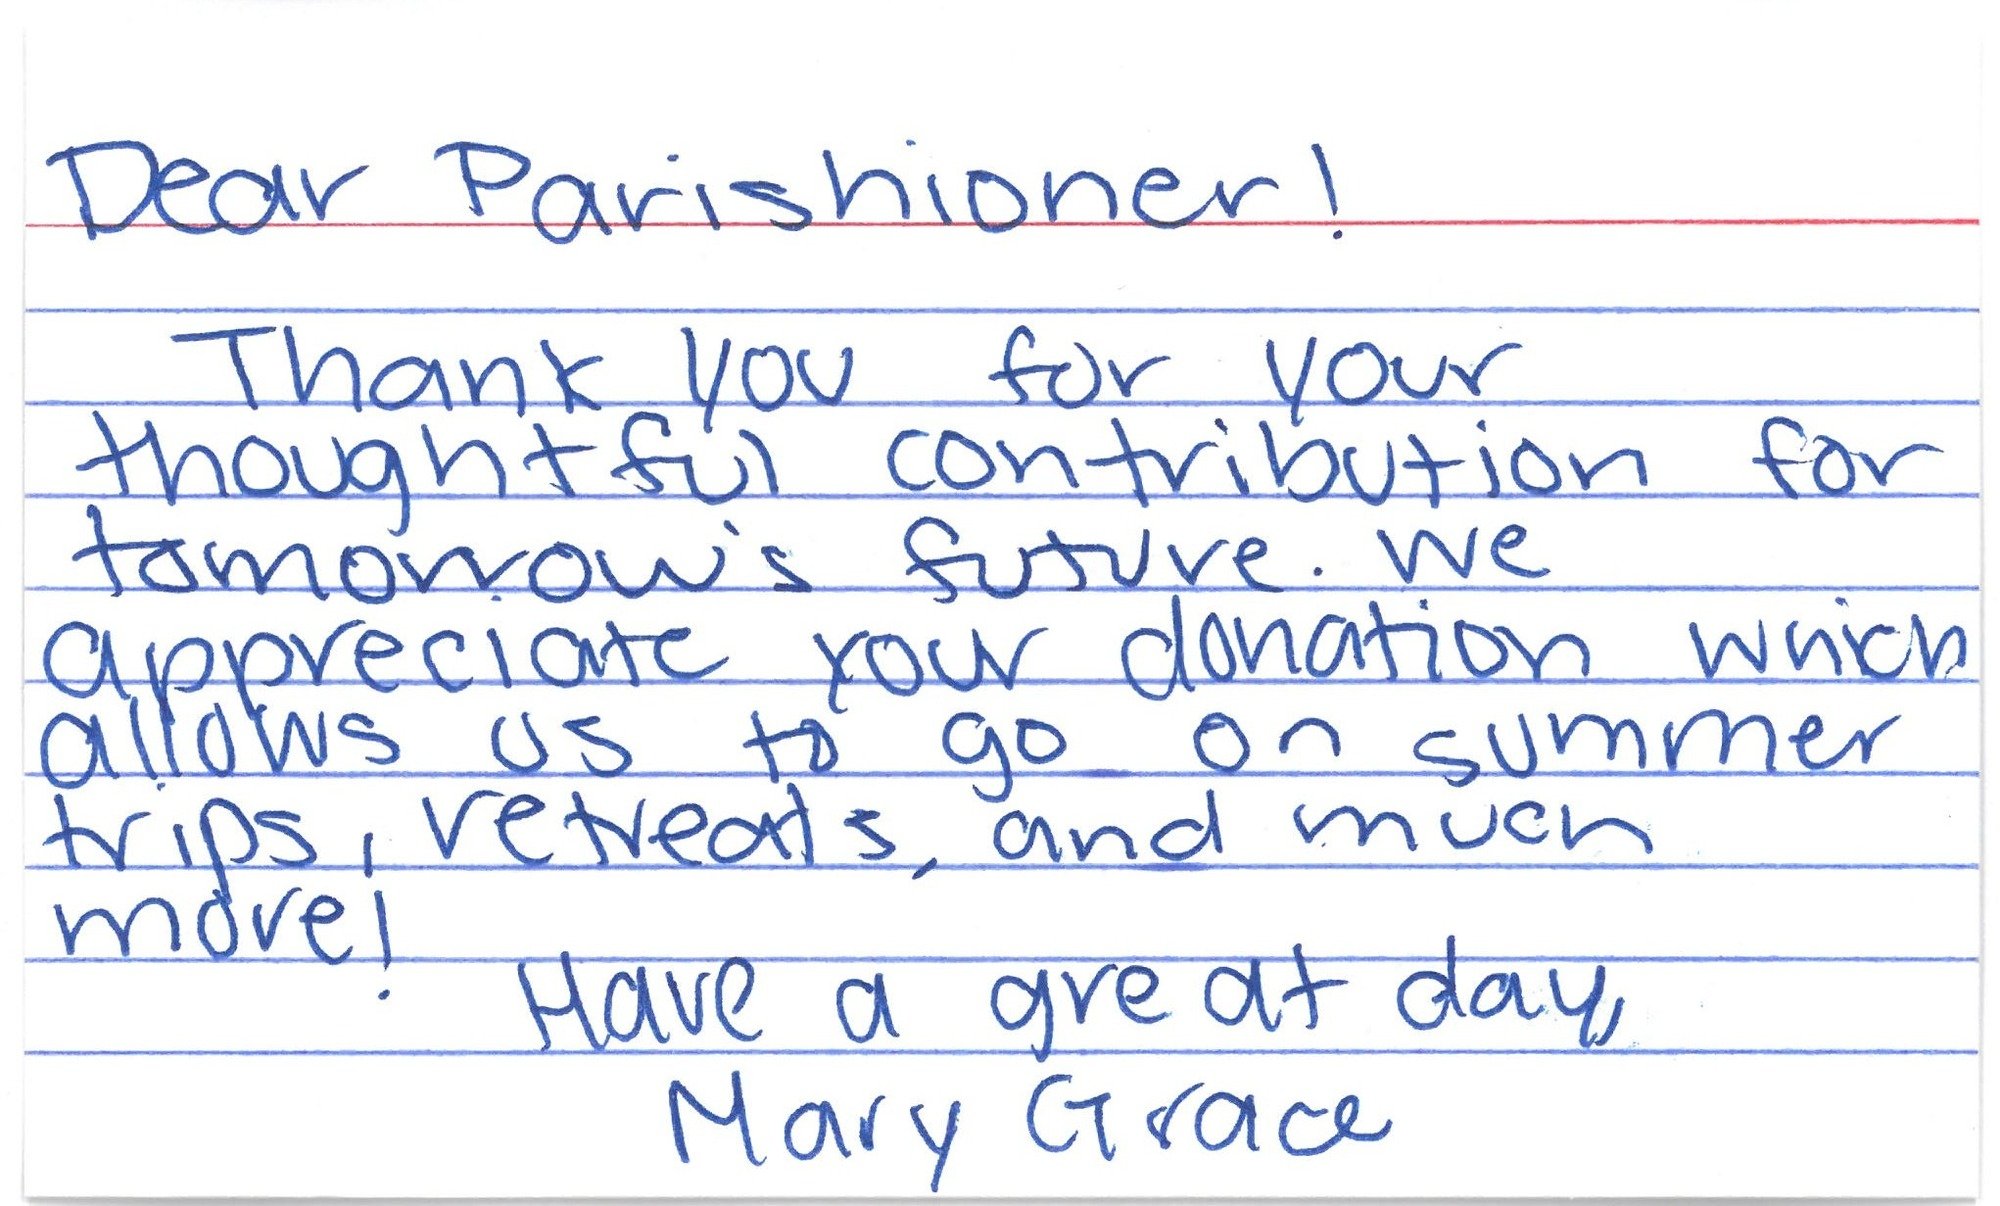 Dear Parishioner!
Thank you for your
thoughtful contribution for
tomorrow's future. We
appreciate your donation which
allows us to go on summer
trips, retreats, and much
more!
Have a great day,
Mary Grace